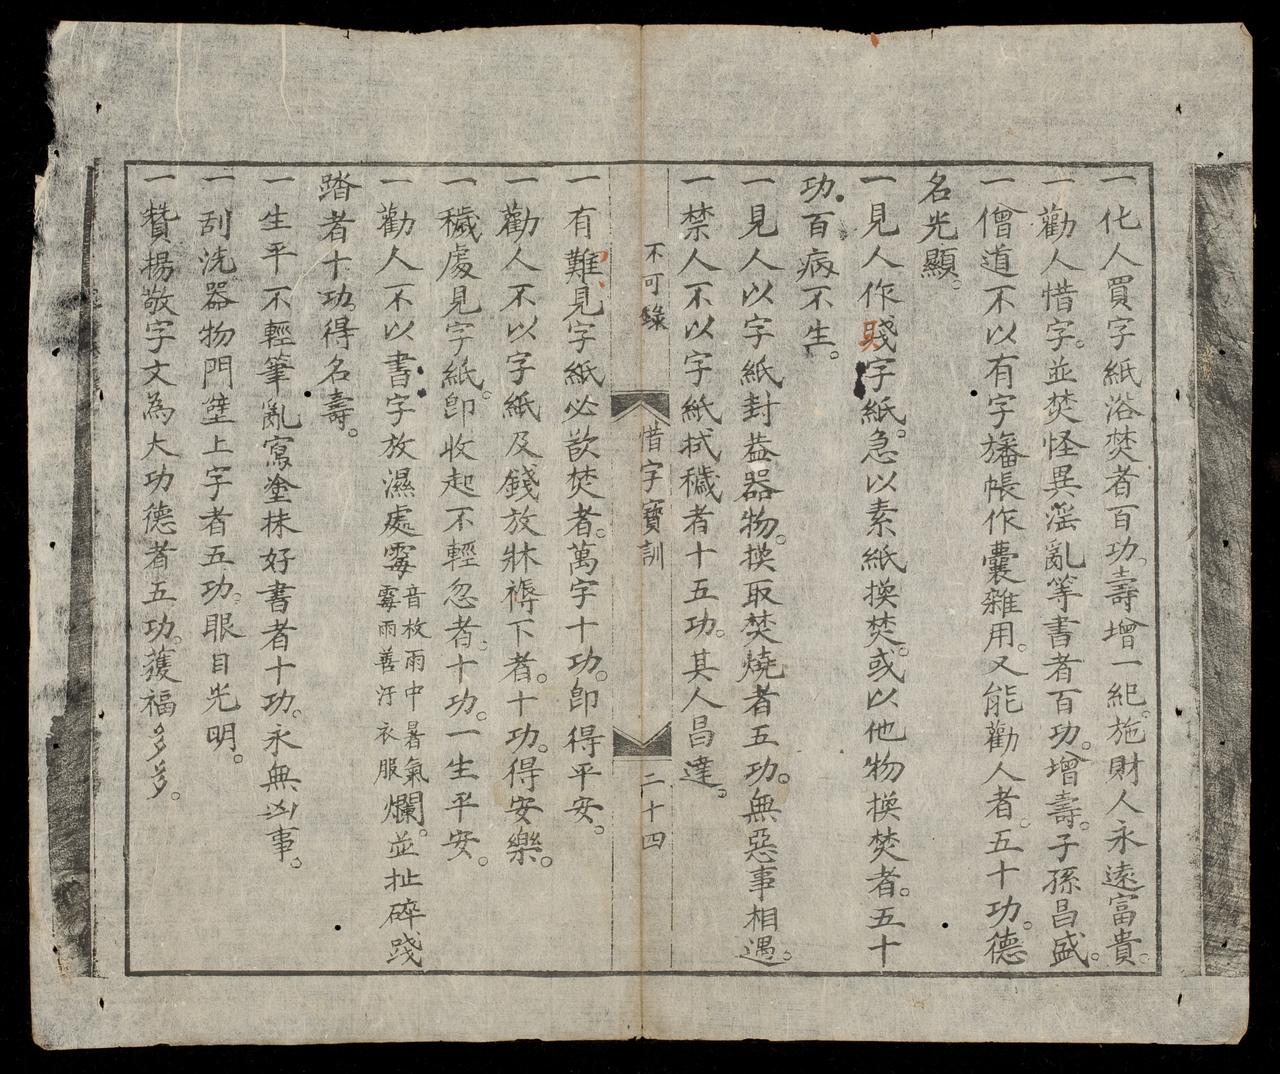 一化人買字紙浴焚者百功。壽增一紀。施財人永遠富貴。
一勸人惜字。並焚怪異淫亂等書者百功。增壽。子孫昌盛。
一僧道不以有字旛帳作囊雜用。又能勸人者。五十功。德
名光顯。
一見人作賤字紙。急以素紙換焚。或以他物換焚者。五十
功。百病不生。
一見人以字紙封葢器物。換取焚燒者五功。無惡事相遇。
一禁人不以字紙拭穢者十五功。其人昌達。
不可錄 惜字寶訓 二十四
一有難見字紙必欲焚者。萬字十功。卽得平安。
一勸人不以字紙及錢放牀褥下者。十功。得安樂。
一穢處見字紙。卽收起不輕忽者。十功。一生平安。
一勸人不以書字放濕處霉音枚雨中暑氣霉雨善汙衣服爛。並扯碎踐
踏者十功。得名壽。
一生平不輕筆亂寫塗抹好書者十功。永無凶事。
一刮洗器物門壁上字者五功。眼目光明。
一贊揚敬字文為大功德者五功。獲福多多。